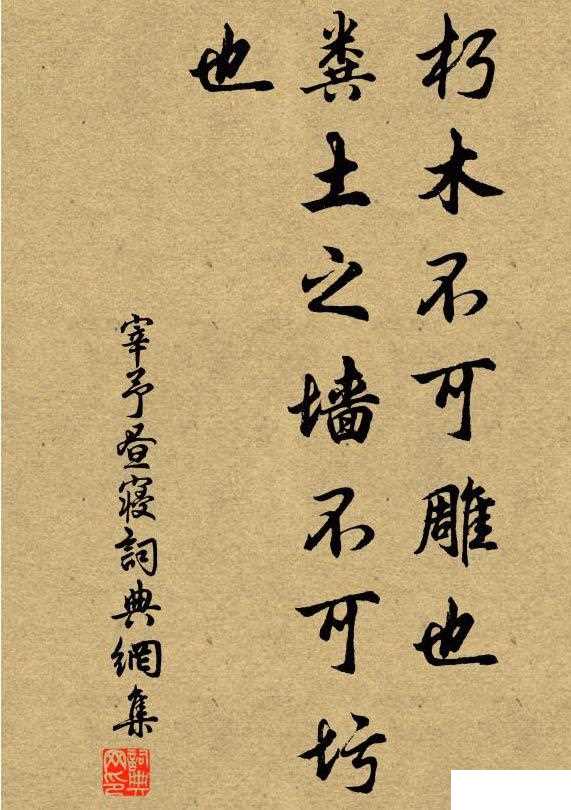 朽木不可雕也
粪土之墙不可圬
也
宰予昼寝詞典網集
詞典
网印